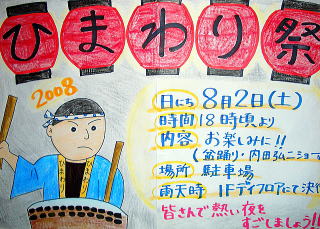 ひまわり祭
2008
日にち 8月2日(土)
時間 18時頃より
内容 お楽しみに!!
(盆踊り・内田弘二ショー
場所 駐車場
雨天時 1Fデイフロアにて決行
皆さんで熱い夜を
すごしましょう!!
ひまわり
ひまわり